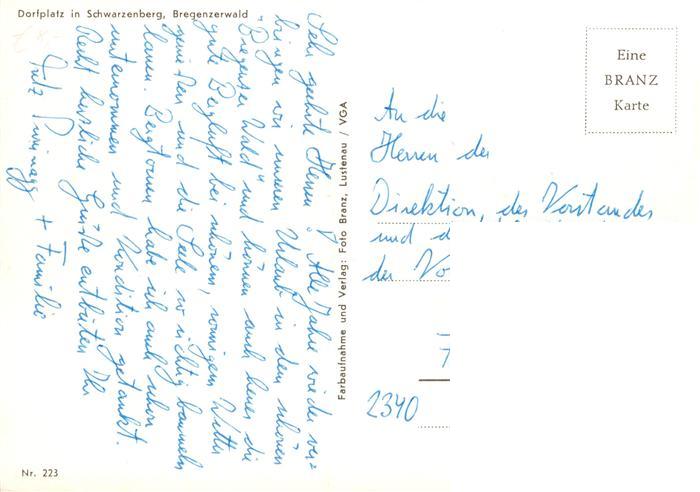 Dorfplatz in Schwarzenberg, Bregenzerwald
Sehr geehrte Herren! Alle Jahre wieder ver=
bringen wir unseren Urlaub in dem schönen
"Bregenzer Wald" und können auch heuer die
gute Bergluft bei schönem, sonnigem Wetter
genießen und die Seele so richtig baumeln
lassen. Bergtouren habe ich auch schon
unternommen und Kondition getankt.
Recht herzliche Grüße entbieten Ihr
Fritz
+ Familie
Nr. 223
Farbaufnahme und Verlag: Foto Branz, Lustenau / VGA
Eine
BRANZ
Karte
An die
Herren der
Direktion, des Vorstandes
und d
der Vo
2340